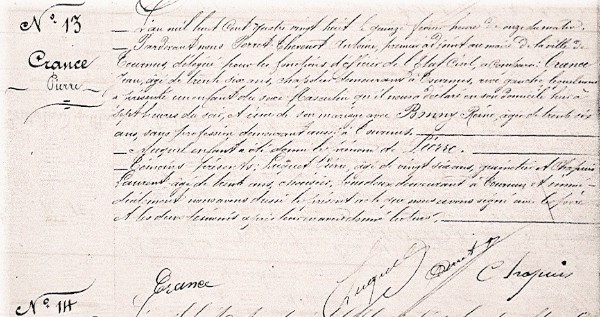 N° 13
Crance
Pierre
L'an mil huit cent quatre vingt huit le quinze février heure de onze du matin
Pardevant nous Perret Thevenot Antoine, premier adjoint au maire de la ville de
Tournus, délégué pour les fonctions d'officier de l'Etat Civil, a comparu: Crance
Jean, âgé de trente six ans, chapelier demeurant à Tournus, rue
a présenté un enfant du sexe Masculin qu'il nous a déclaré né en son domicile hier à
sept heures du soir, et né de son mariage avec Bonny Reine, âgée de trente six
ans, sans profession demeurant aussi à Tournus.
Auquel enfant a été donné le prénom de Pierre.
Témoins présents: Luquet Pierre, âgé de vingt six ans, grainetier et Chapuis
Laurent âgé de trente ans, tous deux demeurant à Tournus et immé-
diatement nous avons dressé le présent acte que nous avons signé avec le père
et les deux témoins après leur en avoir donné lecture.
Crance
Luquet
Chapuis
N° 14